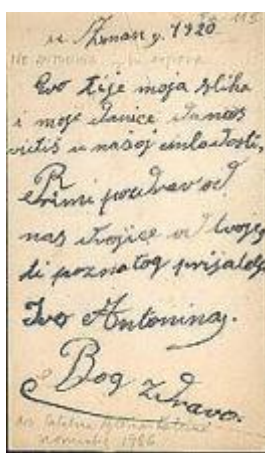 115
u Zeman g. 1920
Evo ti je moja slika
i moje Danice da nas
vidiš u našoj mladosti,
Primi pozdrav od
nas dvojice od tvojeg
poznatog prijatelja
Ivo Antonina.
Bog zdravo.
1986